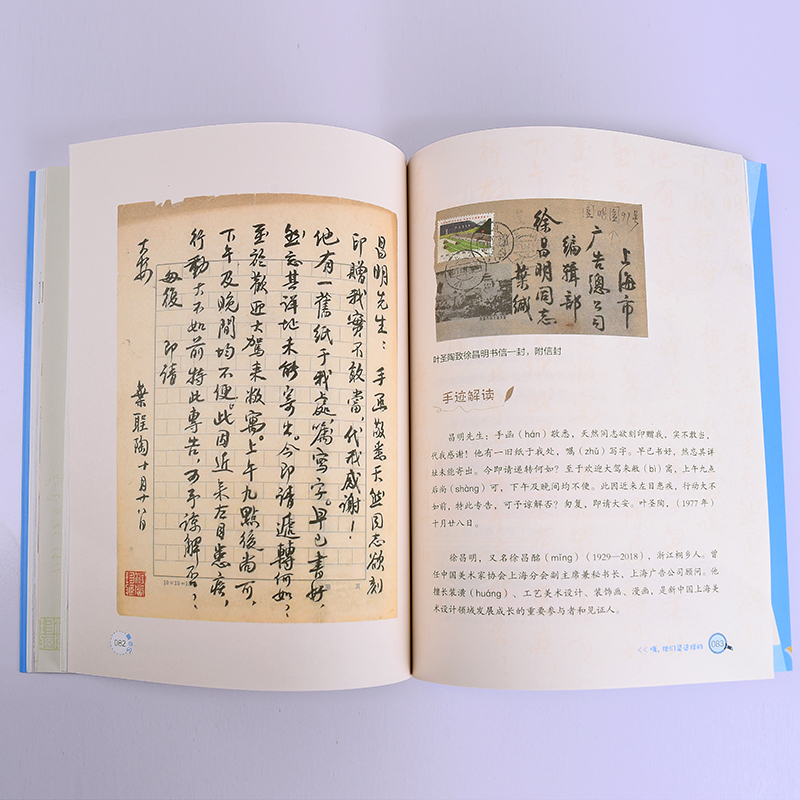 昌明先生：手函敬悉天然同志欲刻
印贈我實不敢當，代我感謝！
他有一舊紙于我處，囑寫字。早已書好，
然忘其詳址未能寄出。今即請遞轉何如？
至於歡迎大駕來敝寓。上午九點後尚可，
下午及晚間均不便。此因近來左目患疾，
行動大不如前特此專告，可予諒解否？
匆復 即請
大安
葉聖陶 十月廿八日
082
上海市
广告總公司
編輯部
徐昌明同志
葉緘
叶圣陶致徐昌明书信一封，附信封
手迹解读
昌明先生：手函（hán）敬悉，天然同志欲刻印赠我，实不敢当，
代我感谢！他有一旧纸于我处，嘱（zhǔ）写字。早已书好，然忘其详
址未能寄出。今即请递转何如？至于欢迎大驾来敝（bì）寓，上午九点
后尚（shàng）可，下午及晚间均不便。此因近来左目患疾，行动大不
如前，特此专告，可予谅解否？匆复，即请大安。叶圣陶，（1977年）
十月廿八日。
徐昌明，又名徐昌酩（mǐng）（1929—2018），浙江桐乡人。曾
任中国美术家协会上海分会副主席兼秘书长，上海广告公司顾问。他
擅长装潢（huáng）、工艺美术设计、装饰画、漫画，是新中国上海美
术设计领域发展成长的重要参与者和见证人。
<<嗨，他们是这样的 083